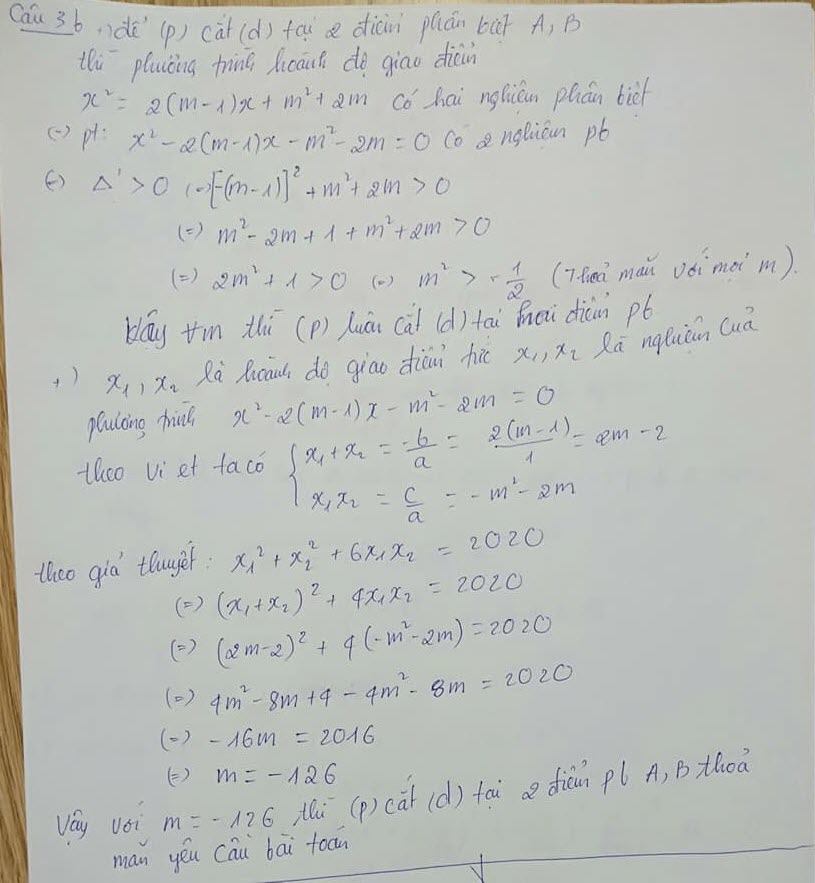 Câu 3b .) để (P) cắt (d) tại 2 điểm phân biệt A, B
thì phương trình hoành độ giao điểm
x² = 2(m-1)x + m² + 2m có hai nghiệm phân biệt
(=) pt: x² - 2(m-1)x - m² - 2m = 0 có 2 nghiệm pb
(=) Δ' > 0 (=) [-(m-1)]² + m² + 2m > 0
(=) m² - 2m + 1 + m² + 2m > 0
(=) 2m² + 1 > 0 (=) m² > -1/2 (Thoả mãn với mọi m).
Vậy ∀m thì (P) luôn cắt (d) tại hai điểm pb
+) x₁, x₂ là hoành độ giao điểm tức x₁, x₂ là nghiệm của
phương trình x² - 2(m-1)x - m² - 2m = 0
theo vi et ta có { x₁ + x₂ = -b/a = 2(m-1)/1 = 2m - 2
x₁x₂ = c/a = -m² - 2m
theo giả thuyết: x₁² + x₂² + 6x₁x₂ = 2020
(=) (x₁+x₂)² + 4x₁x₂ = 2020
(=) (2m-2)² + 4(-m²-2m) = 2020
(=) 4m² - 8m + 4 - 4m² - 8m = 2020
(=) -16m = 2016
(=) m = -126
Vậy với m = -126 thì (P) cắt (d) tại 2 điểm pb A, B thoả
mãn yêu cầu bài toán